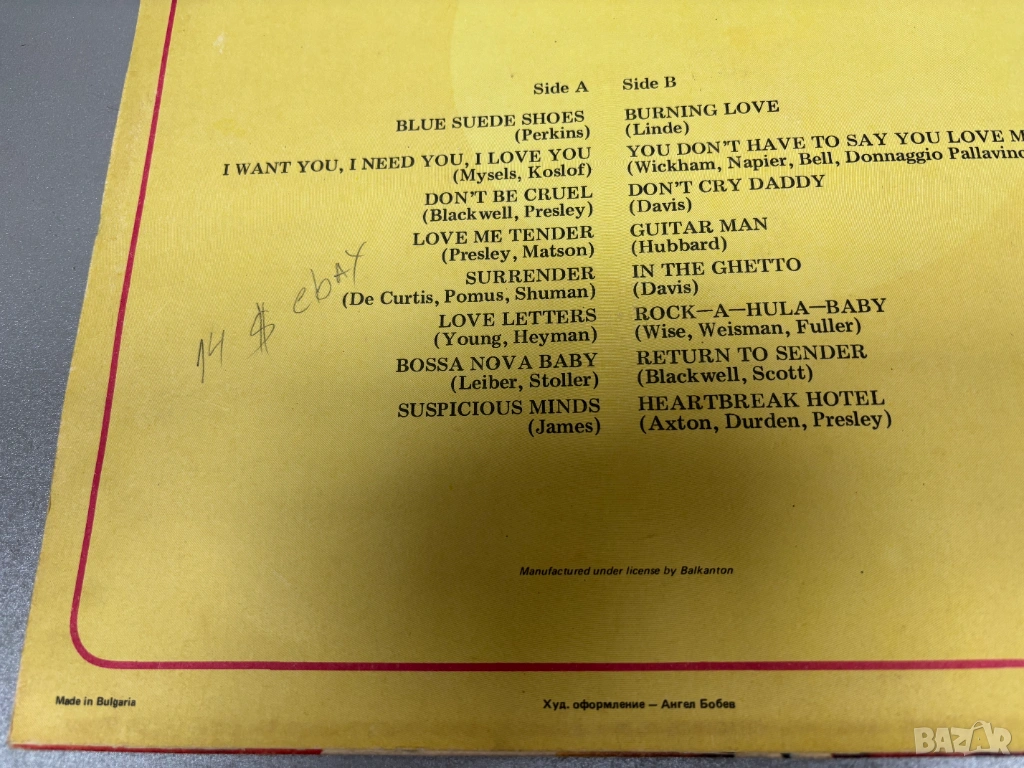 Side A
BLUE SUEDE SHOES
(Perkins)
I WANT YOU, I NEED YOU, I LOVE YOU
(Mysels, Koslof)
DON'T BE CRUEL
(Blackwell, Presley)
LOVE ME TENDER
(Presley, Matson)
SURRENDER
(De Curtis, Pomus, Shuman)
LOVE LETTERS
(Young, Heyman)
BOSSA NOVA BABY
(Leiber, Stoller)
SUSPICIOUS MINDS
(James)
Side B
BURNING LOVE
(Linde)
YOU DON'T HAVE TO SAY YOU LOVE M
(Wickham, Napier, Bell, Donnaggio Pallavino
DON'T CRY DADDY
(Davis)
GUITAR MAN
(Hubbard)
IN THE GHETTO
(Davis)
ROCK—A—HULA—BABY
(Wise, Weisman, Fuller)
RETURN TO SENDER
(Blackwell, Scott)
HEARTBREAK HOTEL
(Axton, Durden, Presley)
14 $ ebAY
Manufactured under license by Balkanton
Made in Bulgaria
Худ. оформление — Ангел Бобев
BAZAR